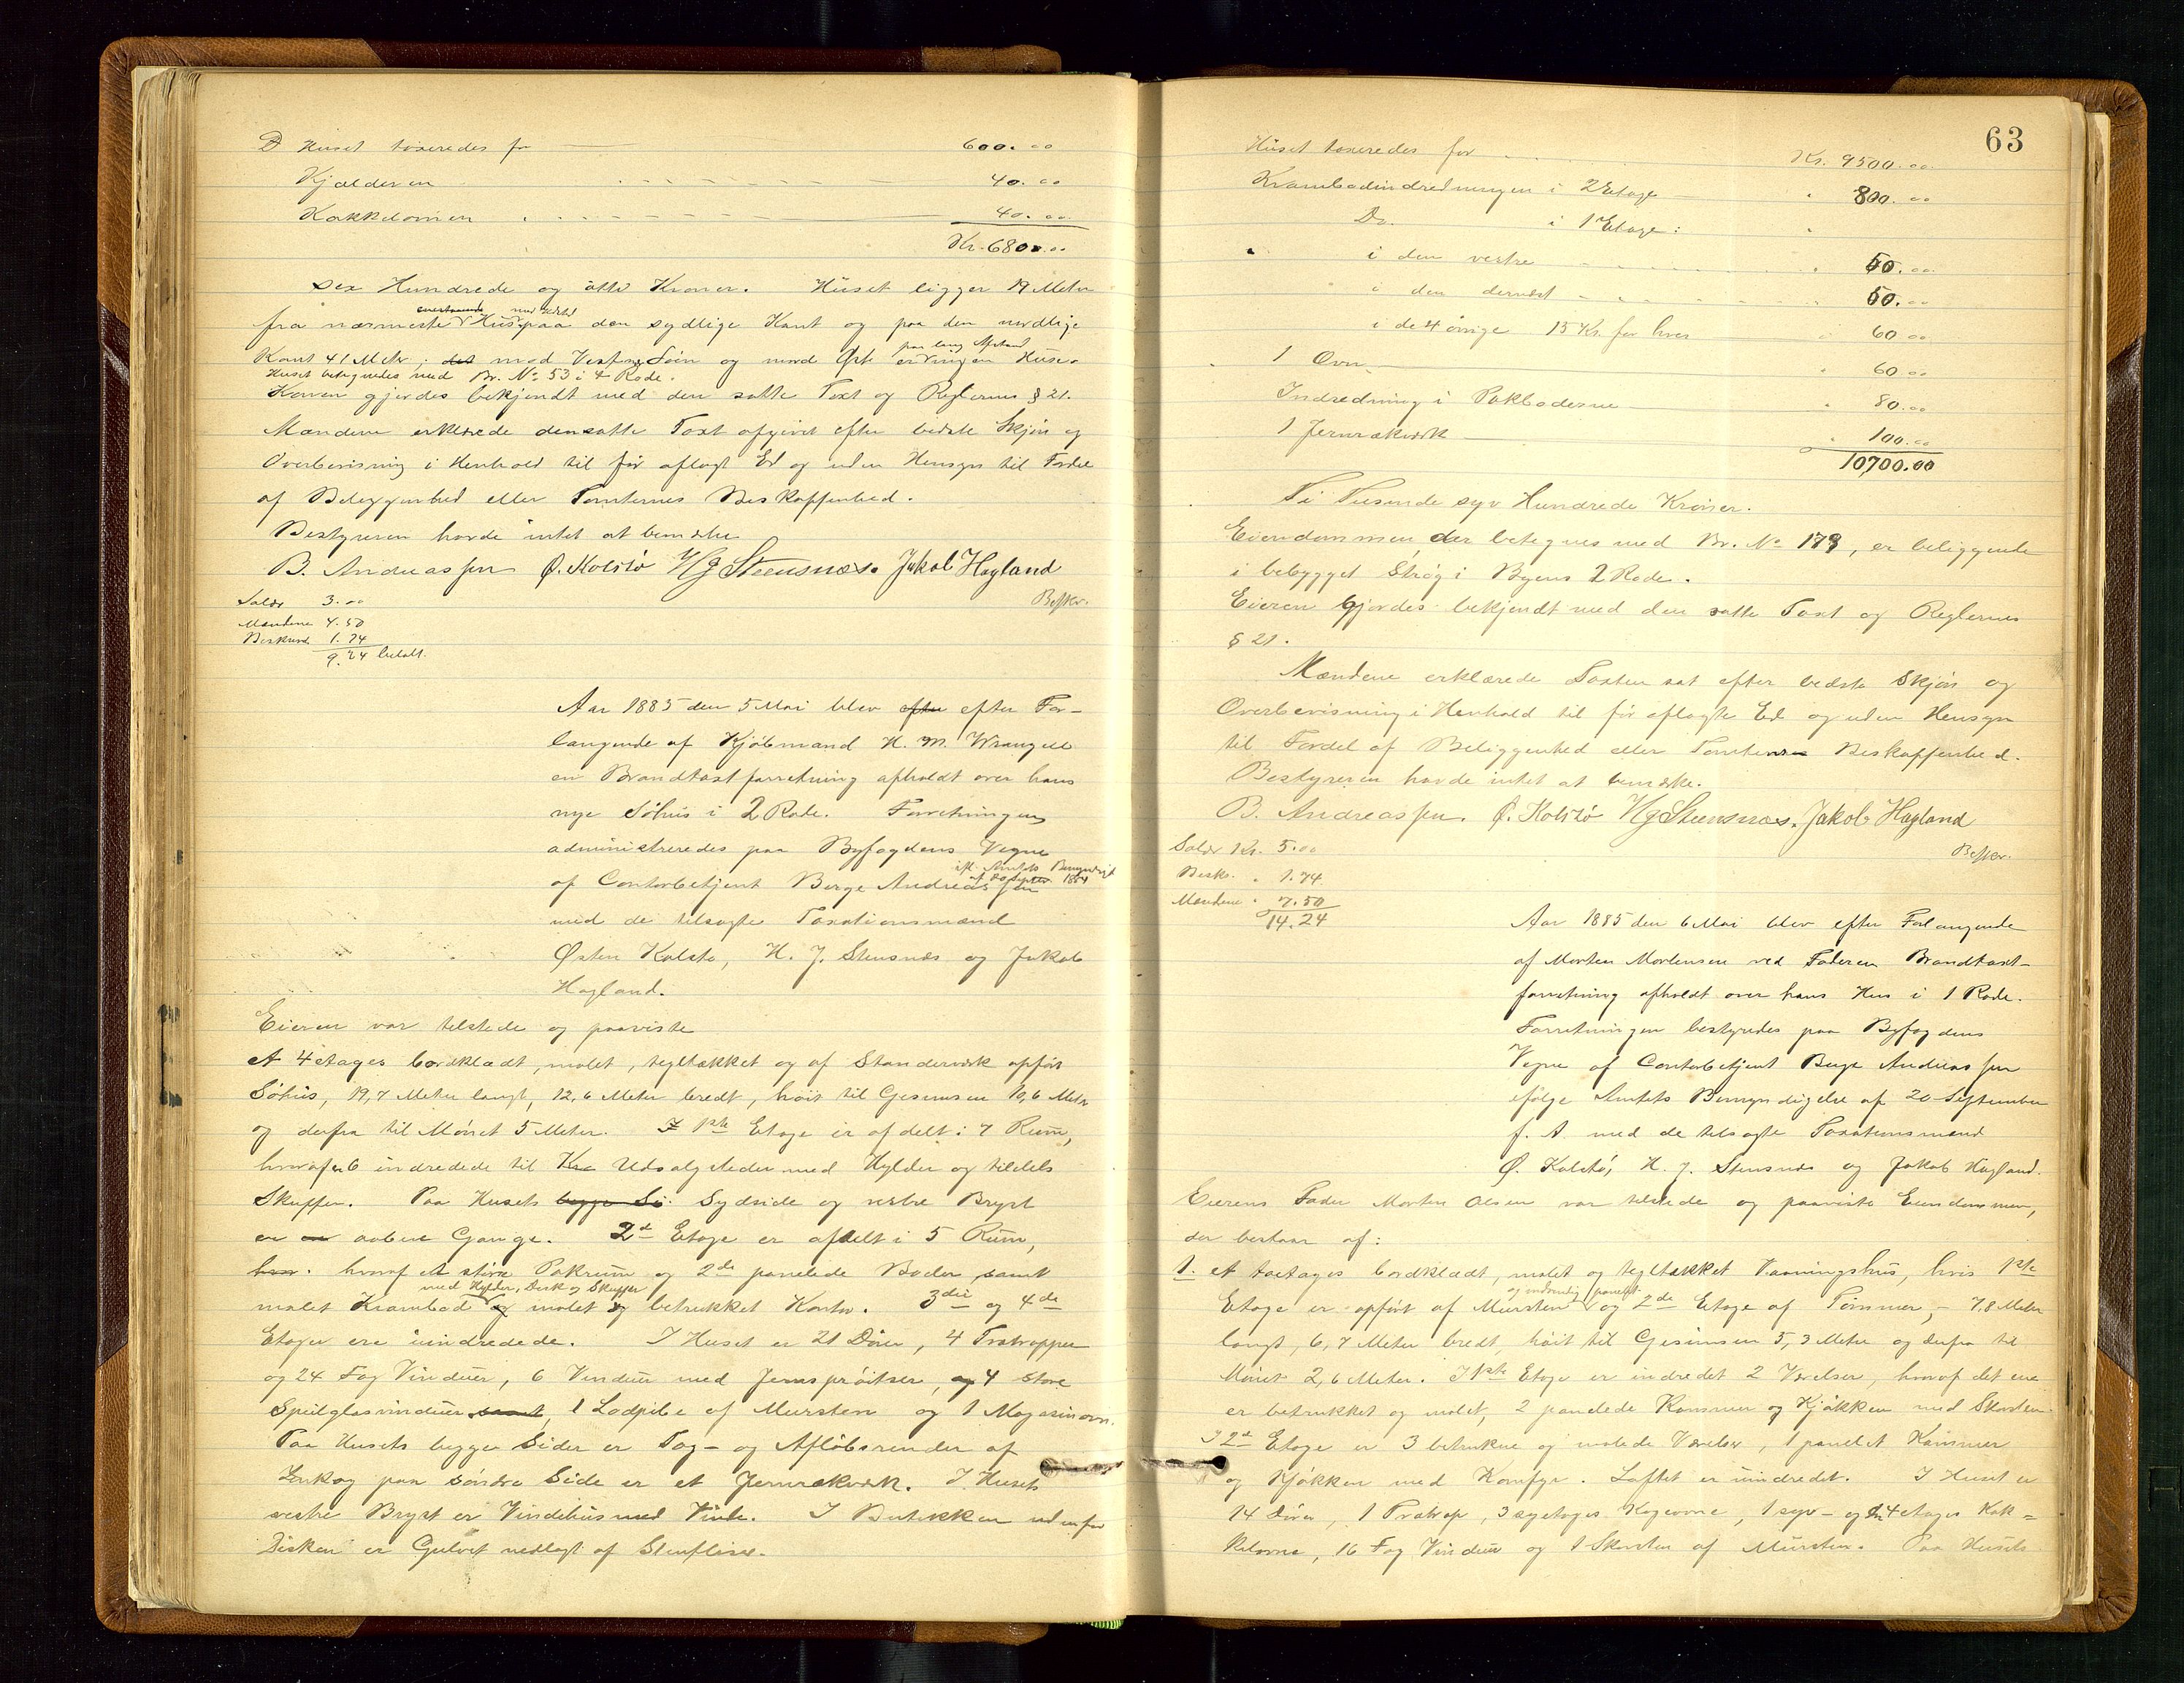 Huset taxeredes for 600.00
Kjælderen 40.00
Kakkelovnen 40.00
Kr. 680.00
sex Hundrede og otti Kroner. Huset ligger 19 Meter
fra nærmeste Hus paa den sydlige Kant og paa den nordlige
Kant 41 Meter; mod Vest Søen og mod Øst er ingen Huse.
paa lang Afstand
Huset betegnedes med Br. No 53 i 4 Rode.
Konen gjordes bekjendt med den satte Taxt og Reglernes § 21.
Mændene erklærede den satte Taxt afgivet efter bedste Skjøn og
Overbevisning i Henhold til før aflagt Ed og uden Hensyn til Fordel
af Beliggenhed eller Tomternes Beskaffenhed.
Bestyreren havde intet at bemærke
B. Andreassen Ø. Kolstø HJ Steensnæs. Jakob Hagland
Beskr.
Salær 3.00
Mændene 4.50
Beskrivn. 1.74
9.24 betalt.
Aar 1885 den 5 Mai blev efter efter For-
langende af Kjøbmand H. M. Wrangell
en Brandtaxtforretning afholdt over hans
nye Søhus i 2 Rode. Forretningen
administreredes paa Byfogdens Vegne
af Contorbetjent Berge Andreassen
ifl. Amtets Bemyndigt
af 20 Septbr 1884
med de tilsagte Taxationsmænd
Østen Kolstø, H. J. Stensnæs og Jakob
Hagland.
Eieren var tilstede og paaviste
et 4 etages bordklædt, malet, tegltækket og af Standerværk opført
Søhus, 19,7 Meter langt, 12,6 Meter bredt, høit til Gesimsen 10,6 Meter
og derfra til Mønet 5 Meter. I 1ste Etage er afdelt i 7 Rum,
hvoraf 6 indredede til Udsalgsteder med Hylder og tildels
Skuffer. Paa Husets begge Si Sydside og vestre Bryst
er aabne Gange. 2d Etage er afdelt i 5 Rum,
hvoraf et større Pakrum og 2de panelede Boder samt
med Hylder, Disk og Skuffer
malet Krambod og malet og betrukket Kontor. 3die og 4de
Etager ere uindredede. I Huset er 21 Døre, 4 Tratrapper
og 24 Fag Vinduer, 6 Vinduer med Jernsprøitser, og 4 store
Speilglasvinduer samt, 1 Lodpibe af Mursten og 1 Magasinovn.
Paa Husets begge Sider er Tag- og Afløbsrender af
Zink og paa søndre Side er et Jernrækværk. I Husets
vestre Bryst er Vindehus med Vinde. I Butikken udenfor
Disken er Gulvet nedlagt af Stenfliser.
63
Huset taxeredes for Kr. 9500.00
Krambodindredningen i 2 Etage 800.00
Do. i 1 Etage:
i den vestre 50.00
i den dernæst 50.00
i de 4 øvrige 15 Kr. for hver 60 00
1 Ovn 60.00
Indredning i Pakboderne 80.00
1 Jernrækværk 100.00
10700.00
Ti Tusende syv Hundrede Kroner.
Eiendommen, der betegnes med Br. No 179, er beliggende
i bebygget Strøg i Byens 2 Rode.
Eieren gjordes bekjendt med den satte Taxt og Reglernes
§ 21.
Mændene erklærede Taxten sat efter bedste Skjøn og
Overbevisning i Henhold til før aflagte Ed og uden Hensyn
til Fordel af Beliggenhed eller Tomtens Beskaffenhed.
Bestyreren havde intet at bemærke.
B. Andreassen. Ø. Kolstø HJ Steensnæs. Jakob Hagland
Beskr.
Salær Kr. 5.00
Beskr. " 1.74
Mændene " 7.50
14.24
Aar 1885 den 6 Mai blev efter Forlangende
af Morten Mortensen ved Faderen Brandtaxt-
forretning afholdt over hans Hus i 1 Rode.
Forretningen bestyredes paa Byfogdens
Vegne af Contorbetjent Berge Andreassen
ifølge Amtets Bemyndigelse af 20 September
f. A. med de tilsagte Taxationsmænd
Ø. Kolstø, H. J. Stensnæs og Jakob Hagland.
Eierens Fader Morten Olsen var tilstede og paaviste Eiendommen,
der bestaar af:
1. et toetages bordklædt, malet og tegltækket Vaaningshus, hvis 1ste
og indvendig panelet
Etage er opført af Mursten og 2de Etage af Tømmer, - 7,8 Meter
langt, 6,7 Meter bredt, høit til Gesimsen 5,3 Meter og derfra til
Mønet 2,6 Meter. I 1ste Etage er indredet 2 Værelser, hvoraf det ene
er betrukket og malet, 2 panelede Kammer og Kjøkken med Skorsten.
I 2d Etage er 3 betrukne og malede Værelser, 1 panelet Kammer
og Kjøkken med Komfyr. Loftet er uindredet. I Huset er
14 Døre, 1 Tratrap, 3 Kogeovne, 1 syv- og 4 etages Kak=
kelovne, 16 Fag Vinduer og 1 Skorsten af Mursten. Paa Husets